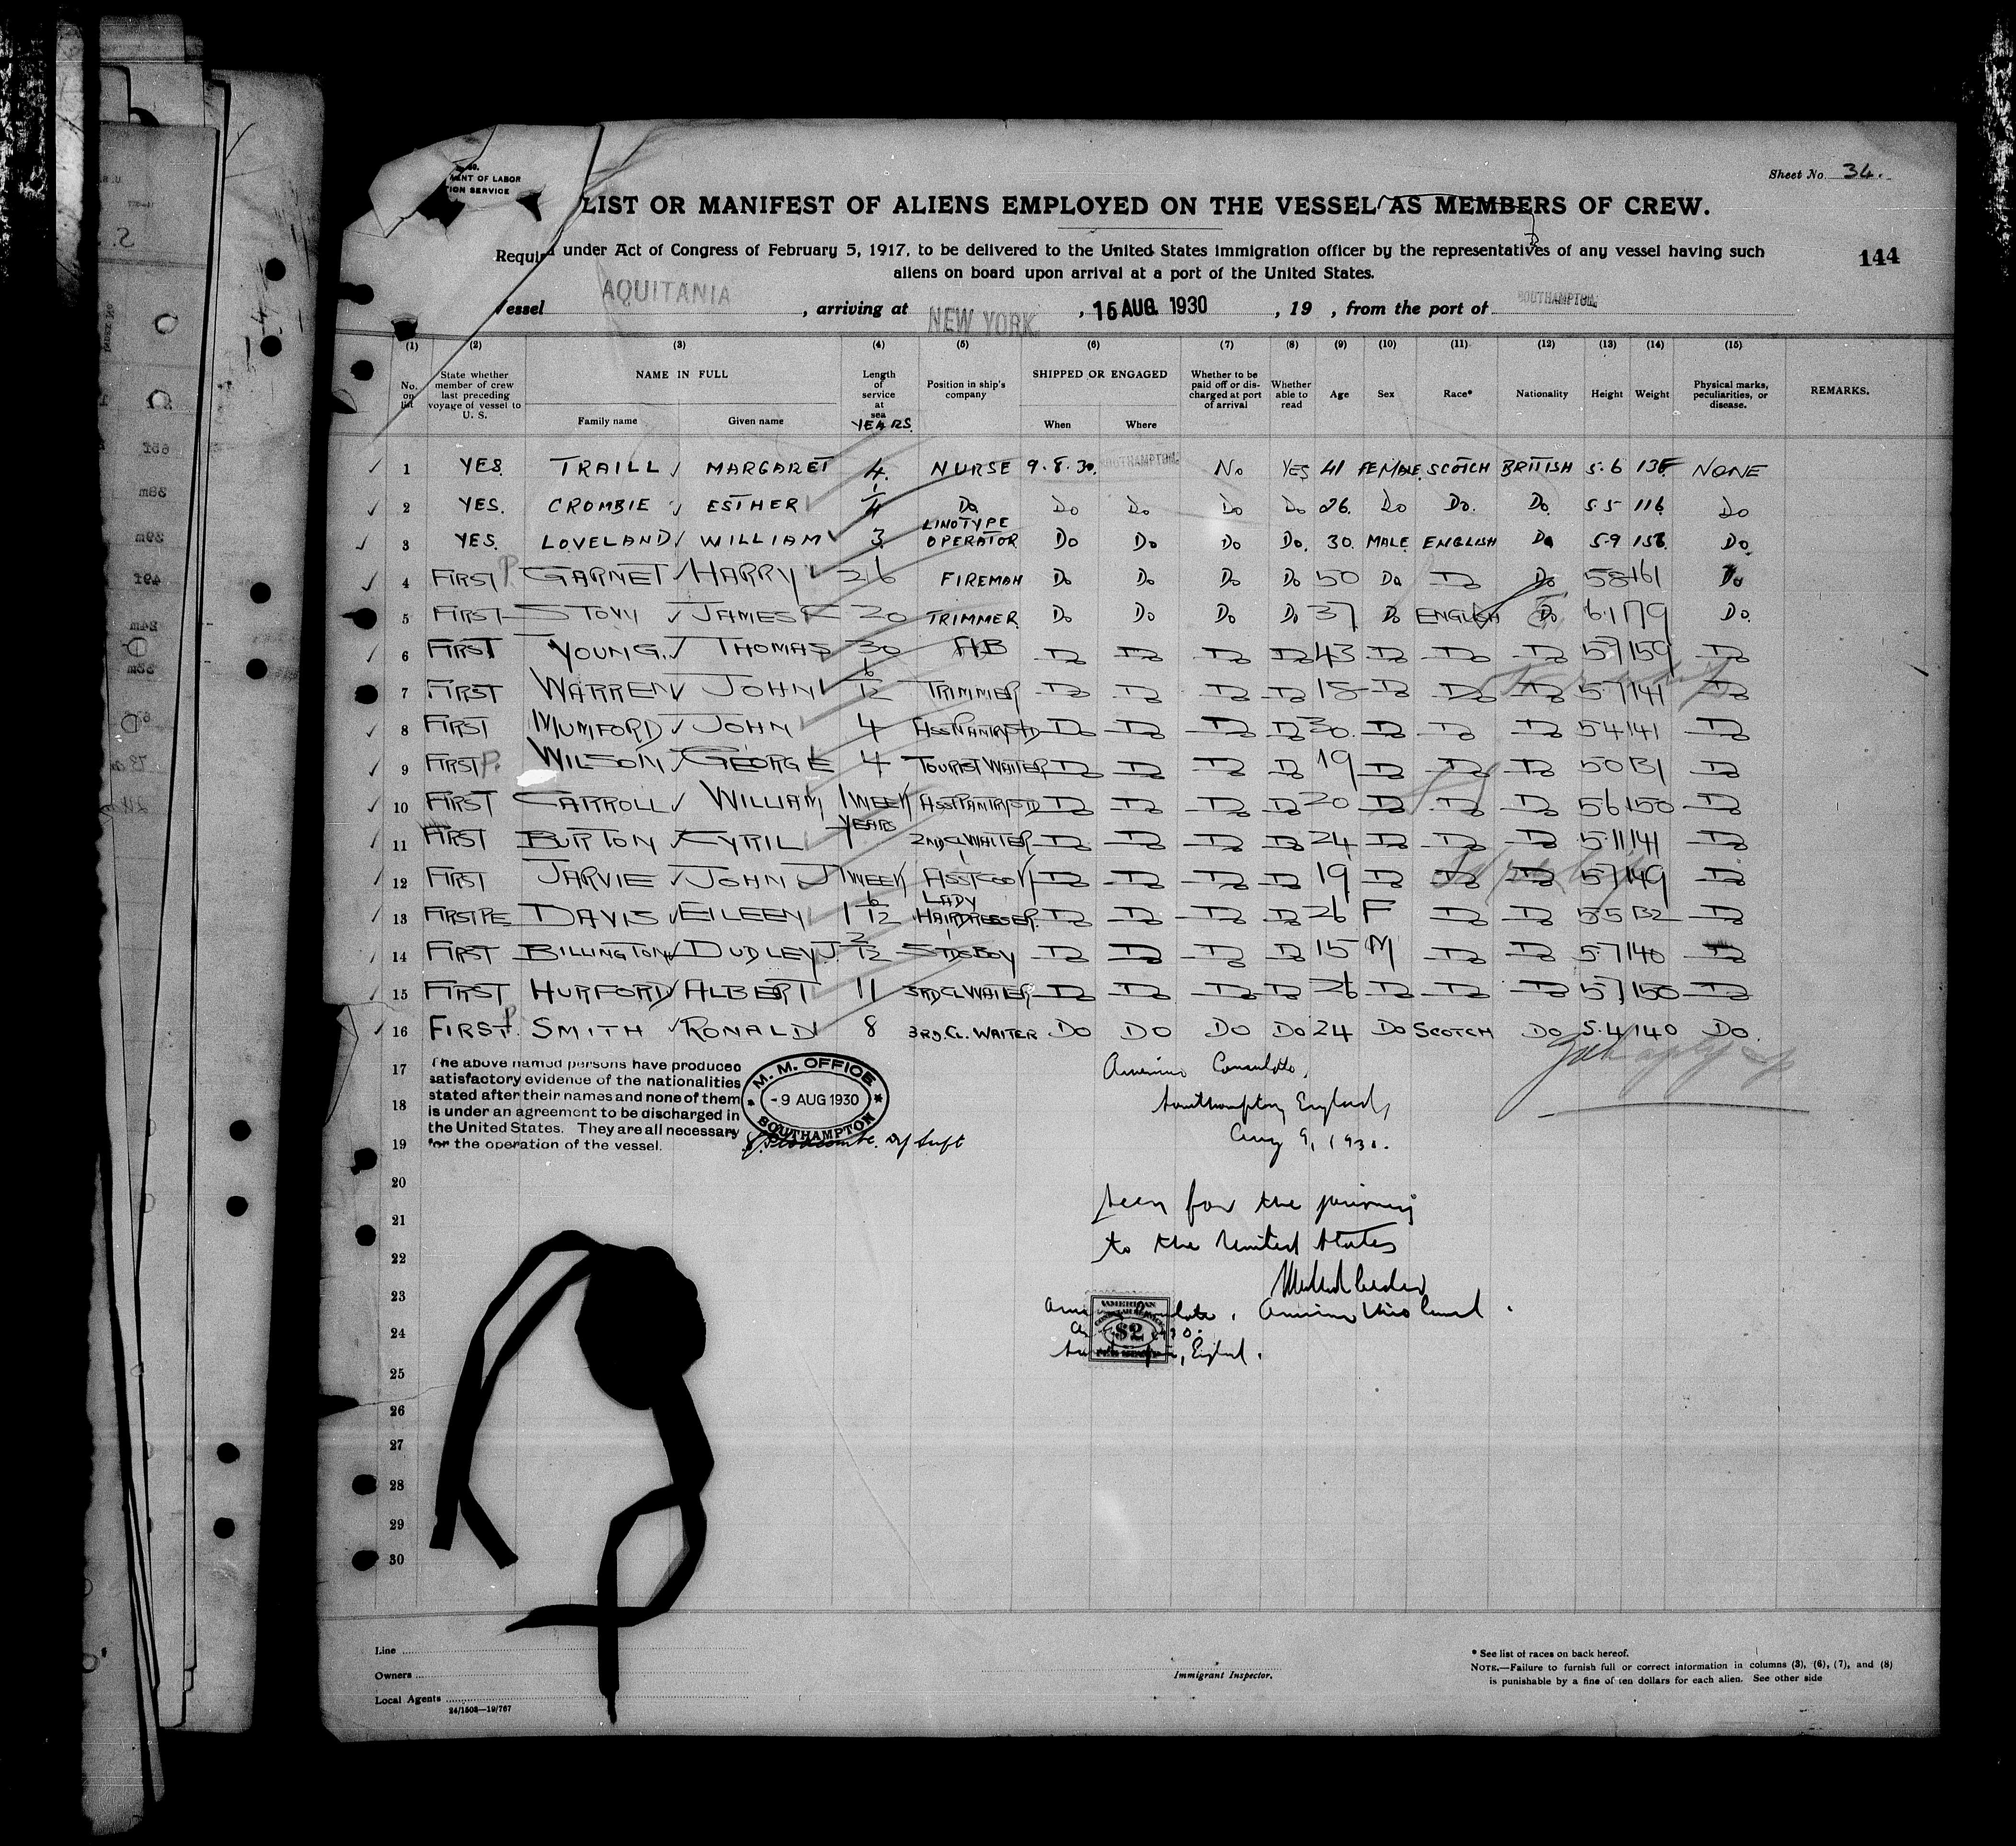 Sheet No. 34.
MENT OF LABOR
TION SERVICE
LIST OR MANIFEST OF ALIENS EMPLOYED ON THE VESSEL AS MEMBERS OF CREW.
Required under Act of Congress of February 5, 1917, to be delivered to the United States immigration officer by the representatives of any vessel having such
aliens on board upon arrival at a port of the United States.
144
Vessel AQUITANIA, arriving at NEW YORK, 15 AUG. 1930, 19 , from the port of SOUTHAMPTON.
(1) (2) (3) (4) (5) (6) (7) (8) (9) (10) (11) (12) (13) (14) (15)
No. on list State whether member of crew last preceding voyage of vessel to U. S. NAME IN FULL Family name Given name Length of service at sea YEARS. Position in ship's company SHIPPED OR ENGAGED When Where Whether to be paid off or discharged at port of arrival Whether able to read Age Sex Race* Nationality Height Weight Physical marks, peculiarities, or disease. REMARKS.
1 YES. TRAILL MARGARET 4 NURSE 9.8.30. SOUTHAMPTON. No YES 41 FEMALE SCOTCH BRITISH 5.6 NONE
2 YES. CROMBIE ESTHER 1/4 Do Do Do Do Do 26. Do Do. Do. 5.5 116 Do
3 YES. LOVELAND WILLIAM 3 LINOTYPE OPERATOR Do Do Do Do. 30. MALE ENGLISH Do 5.9 Do
4 FIRST P GARNET HARRY 26 FIREMAN Do Do Do Do 50 Do Do Do 5 8 161 Do
5 FIRST JAMES F 20 TRIMMER. Do Do Do Do 37 Do ENGLISH Do 6.1 179 Do.
6 FIRST YOUNG. THOMAS 30 AB Do Do Do Do 43 Do Do Do 5.7 159 Do
7 FIRST WARREN JOHN 6/12 TRIMMER Do Do Do Do 18 Do Do Do 5.7 141 Do
8 FIRST MUMFORD JOHN 4 ASSPANTRYSTD Do Do Do Do 30. Do Do Do 5 4 141 Do
9 FIRST P. WILSON GEORGE 4 TOURIST WAITER Do Do Do Do 19 Do Do Do 5 0 131 Do
10 FIRST CARROLL WILLIAM 1 WEEK ASSTPANTRYSTD Do Do Do Do 20 Do Do Do 5 6 150 Do
11 FIRST BURTON CYRIL YEARS 2ND CL WAITER Do Do Do Do 24 Do Do Do 5.11 141 Do
12 FIRST JARVIE JOHN J 1 WEEK ASSTCOOK Do Do Do Do 19 Do Do Do 5.7 149 Do
13 FIRST PE DAVIS EILEEN 1 6/12 LADY HAIRDRESSER. Do Do Do Do 26 F Do Do 5.5 132 Do
14 FIRST BILLINGTON DUDLEY J. 2/12 STDSBOY Do Do Do Do 15 M Do Do 5.7 140 Do
15 FIRST HURFORD ALBERT 11 3RD CL WAITER Do Do Do Do 26 Do Do Do 5.7 150 Do
16 FIRST P. SMITH RONALD 8 3RD. CL. WAITER Do Do Do Do 24 Do SCOTCH Do 5.4 140 Do.
17
18
19
20
21
22
23
24
25
26
27
28
29
30
The above named persons have produced
satisfactory evidence of the nationalities
stated after their names and none of them
is under an agreement to be discharged in
the United States. They are all necessary
for the operation of the vessel.
M. M. OFFICE
- 9 AUG 1930
SOUTHAMPTON
Dy Supt
American Consulate,
Southampton, England,
Aug 9, 1930.
Seen for the journey
to the United States
American Vice Consul.
AMERICAN
$2
England.
Line
Owners
Local Agents
24/1508—19/767
Immigrant Inspector.
* See list of races on back hereof.
NOTE.—Failure to furnish full or correct information in columns (3), (6), (7), and (8)
is punishable by a fine of ten dollars for each alien. See other side